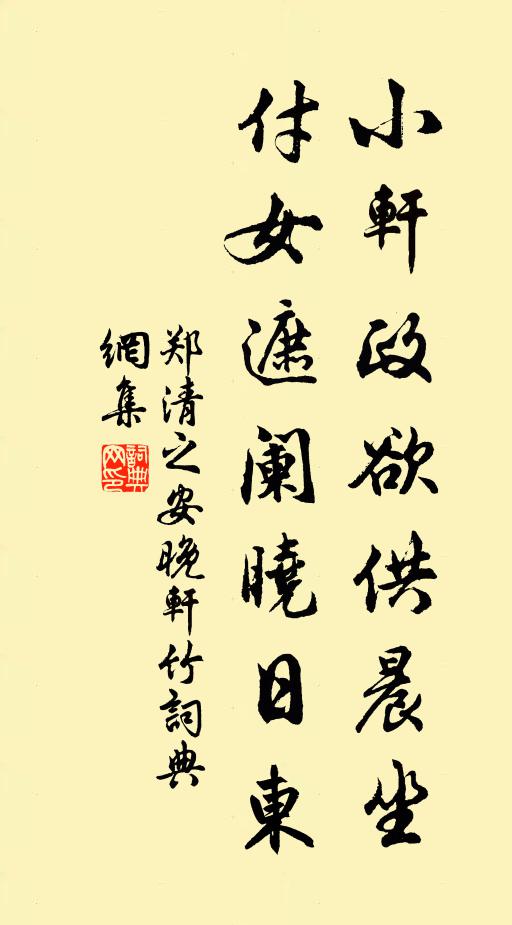 小軒政欲供晨坐
付女遮阑曉日東
郑清之安晚軒竹詞典
網集
詞典网印